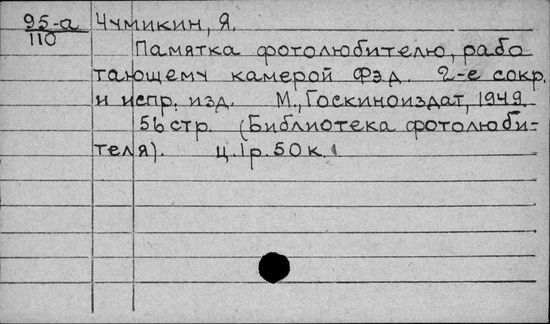 95-а Чумикин, Я.
110
Памятка фотолюбителю, рабо
тающему камерой Фэд. 2-е сокр.
и испр. изд. М., Госкиноиздат, 1949.
56 стр. (Библиотека фотолюби-
теля). ц. 1 р. 50 к.